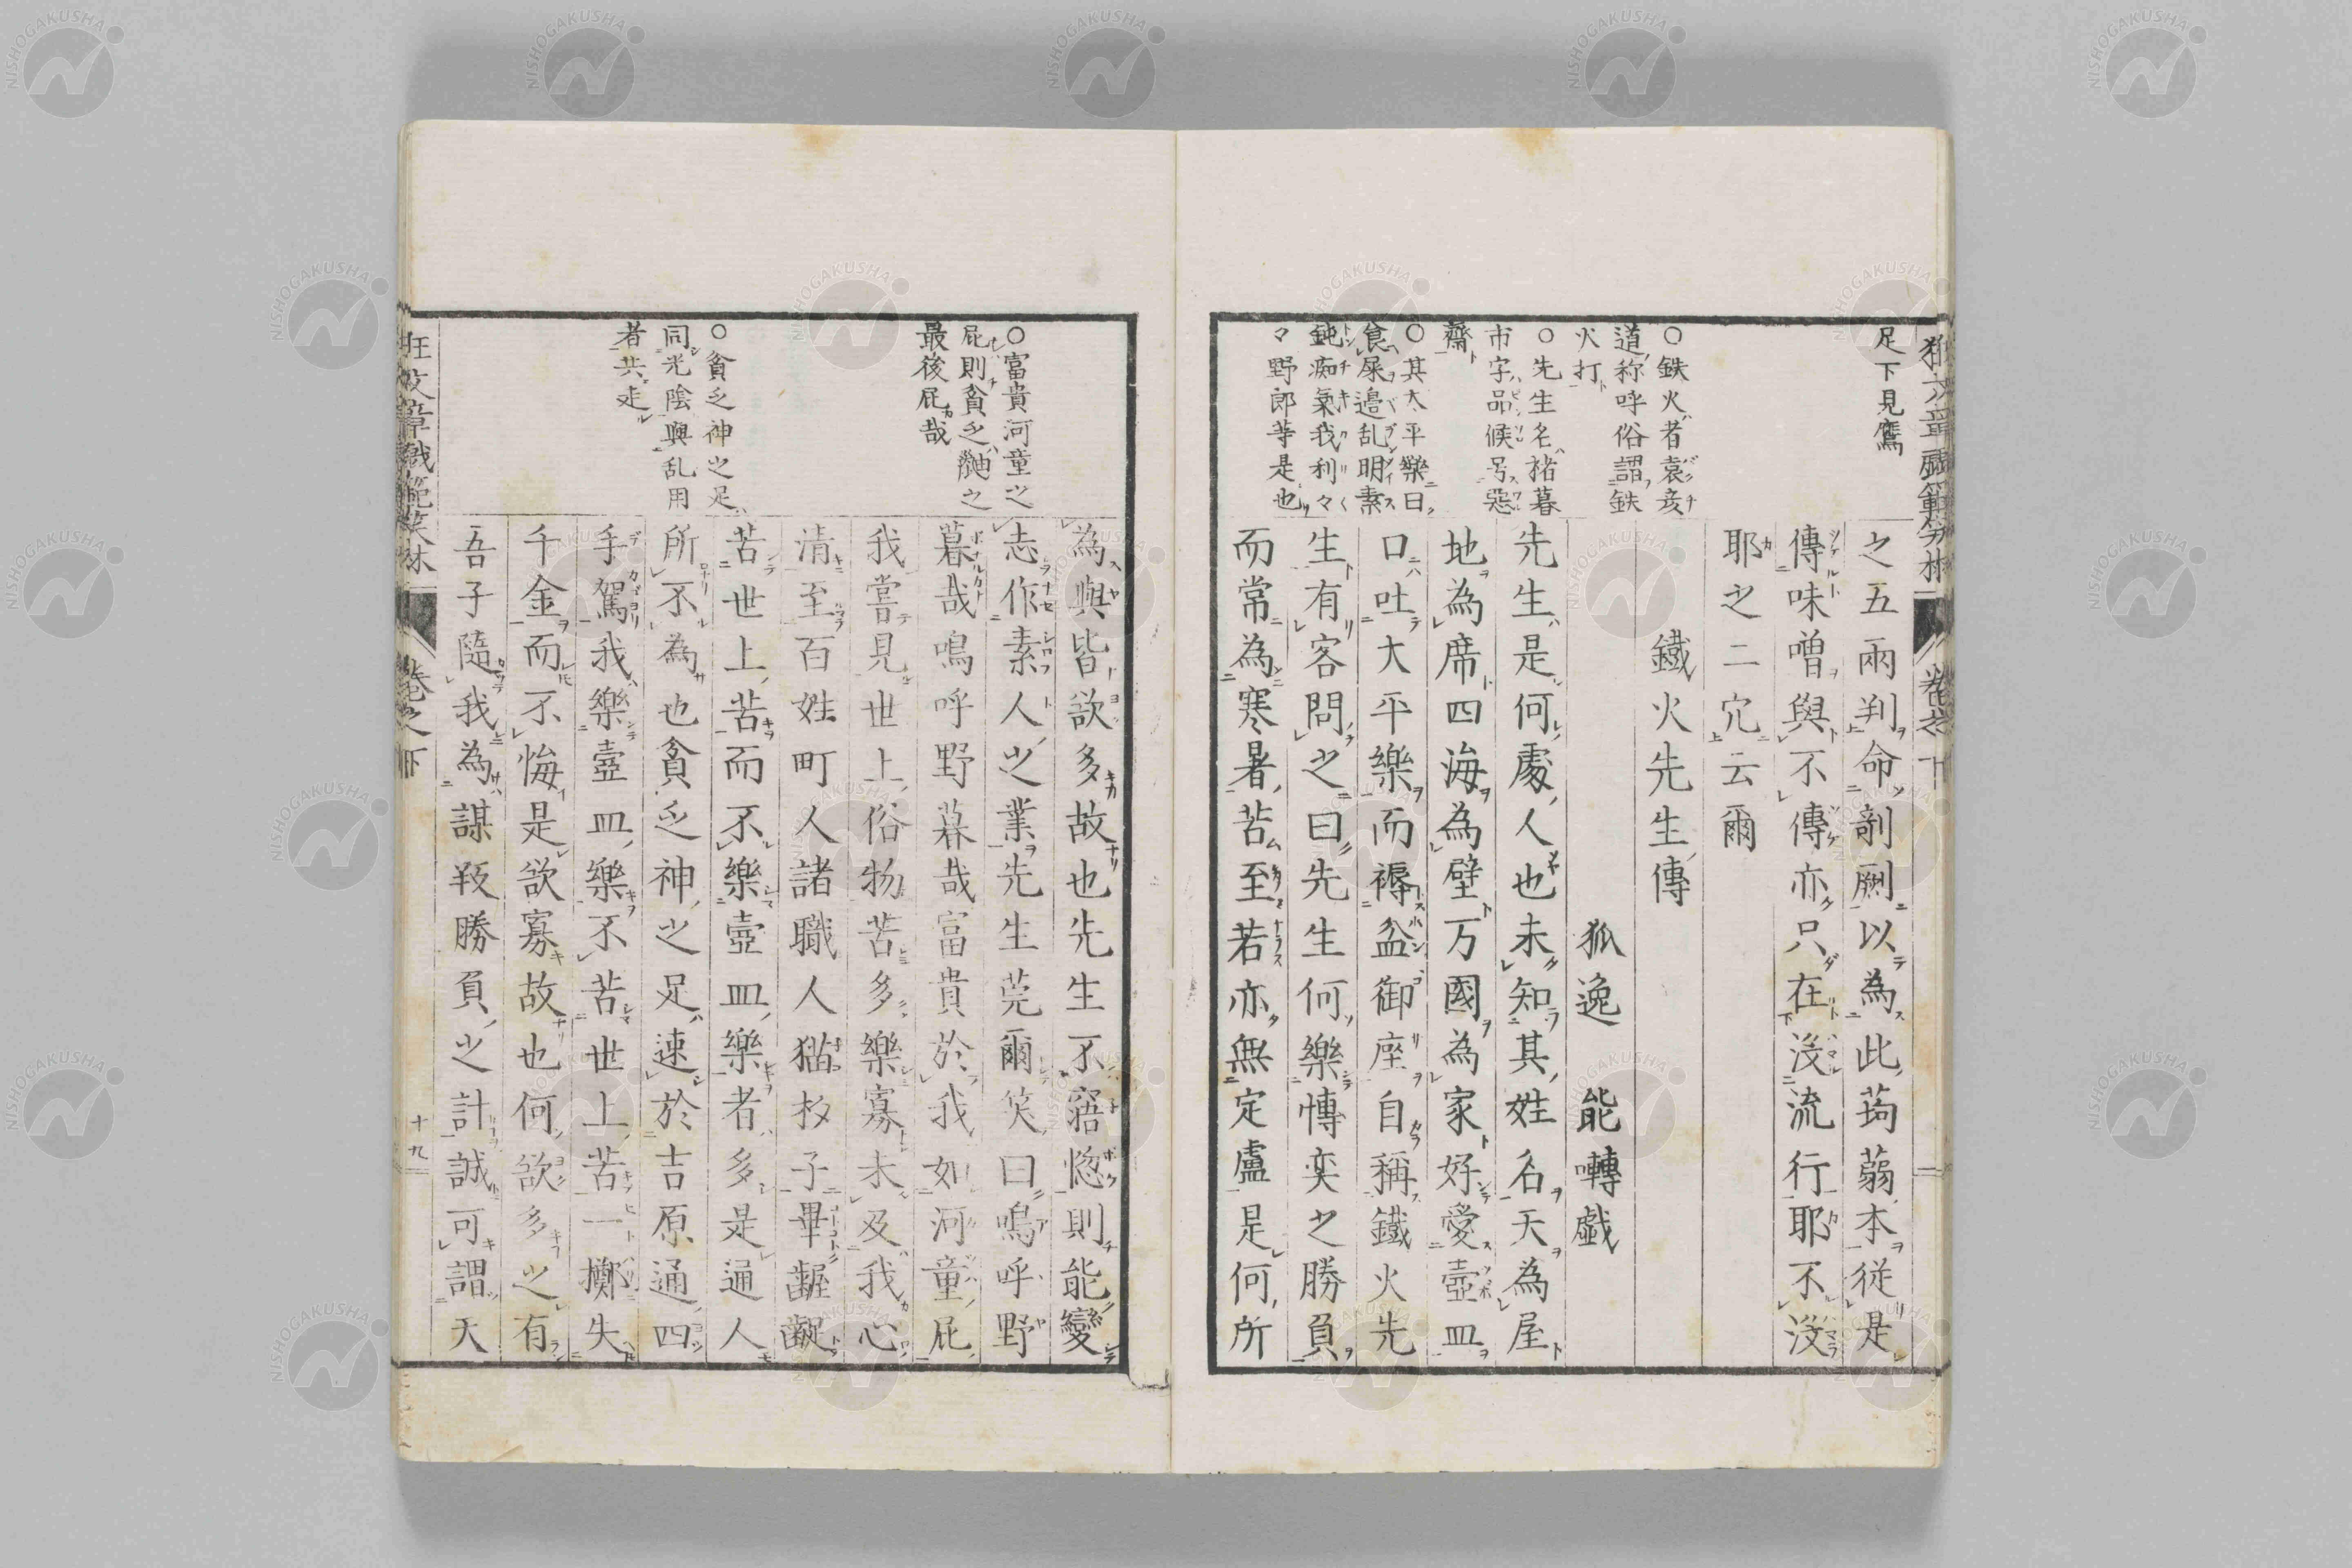 足下見鷹
之五兩判命剞劂以為此蒟蒻本從是
傳味噌與不傳亦只在沒流行耶不沒
耶之二穴云爾
○鉄火者袁彦
道称呼俗謂鉄
火打
鐵火先生傳
狐逸 能囀戯
○先生名揩暮
市字品候号惡
齋
先生是何處人也未知其姓名天為屋
地為席四海為壁万國為家好愛壺皿
○其大平樂曰
食屎邉乱明素
鈍痴氣我利々
々野郎等是也
口吐大平樂而褥盆御座自稱鐵火先
生有客問之曰先生何樂慱奕之勝負
而常為寒暑苦至若亦無定盧是何所
為與皆欲多故也先生不寤惚則能變
○富貴河童之
屁則貧乏之
最後屁哉
志作素人之業先生莞爾笑曰嗚呼野
暮哉嗚呼野暮哉富貴於我如河童屁
我嘗見世上俗物苦多樂寡未及我心
清至百姓町人諸職人猫杓子畢齷齪
○貧乏神之足
同光陰與乱用
者共走
苦世上苦而不樂壺皿樂者多是通人
所不為也貧乏神之足速於吉原通四
手駕我樂壺皿樂不苦世上苦一擲失
千金而不悔是欲寡故也何欲多之有
吾子隨我為謀殺勝負之計誠可謂天
卷之下
十九
NISHOGAKUSHA